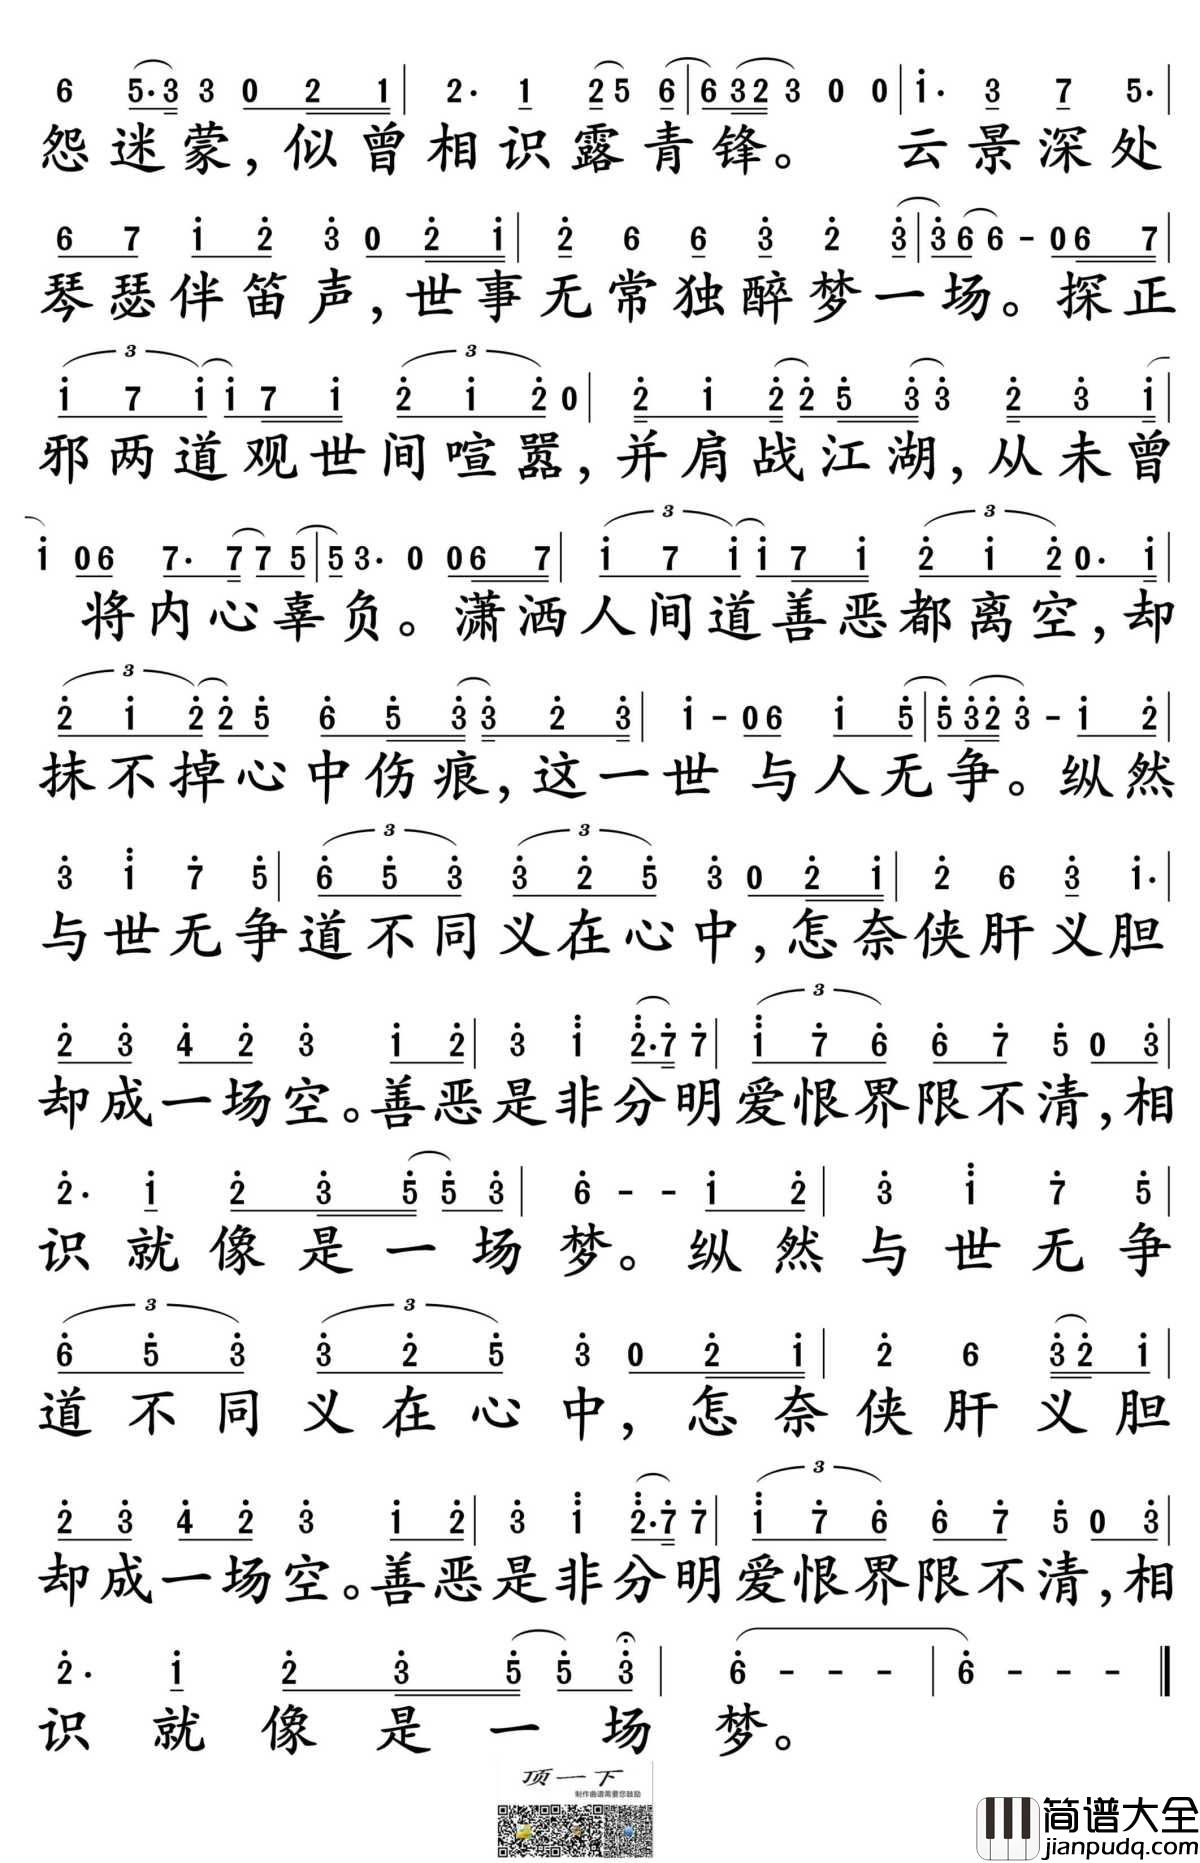 6 5·3 3 0 2 1 | 2· 1 2 5 6 | 6 3 2 3 0 0 | 1· 3 7 5·
怨迷蒙,似曾相识露青锋。 云景深处
6 7 1 2 3 0 2 1 | 2 6 6 3 2 3 | 3 6 6 - 0 6 7 |
琴瑟伴笛声,世事无常独醉梦一场。探正
3 3
1 7 1 1 7 1 2 1 2 0 | 2 1 2 2 5 3 3 2 3 1 |
邪两道观世间喧嚣,并肩战江湖,从未曾
3 3
1 0 6 7· 7 7 5 | 5 3· 0 0 6 7 | 1 7 1 1 7 1 2 1 2 0· 1 |
将内心辜负。潇洒人间道善恶都离空,却
3
2 1 2 2 5 6 5 3 3 2 3 | 1 - 0 6 1 5 | 5 3 2 3 - 1 2 |
抹不掉心中伤痕,这一世与人无争。纵然
3 3
3 1 7 5 | 6 5 3 3 2 5 3 0 2 1 | 2 6 3 1·
与世无争道不同义在心中,怎奈侠肝义胆
3
2 3 4 2 3 1 2 | 3 1 2·7 7 | 1 7 6 6 7 5 0 3 |
却成一场空。善恶是非分明爱恨界限不清,相
2· 1 2 3 5 5 3 | 6 - - 1 2 | 3 1 7 5 |
识就像是一场梦。纵然与世无争
3 3
6 5 3 3 2 5 3 0 2 1 | 2 6 3 2 1 |
道不同义在心中,怎奈侠肝义胆
3
2 3 4 2 3 1 2 | 3 1 2·7 7 | 1 7 6 6 7 5 0 3 |
却成一场空。善恶是非分明爱恨界限不清,相
2· 1 2 3 5 5 3 | 6 - - - | 6 - - - ‖
识就像是一场梦。
顶一下
制作曲谱需要您鼓励
简谱大全
jianpudq.com